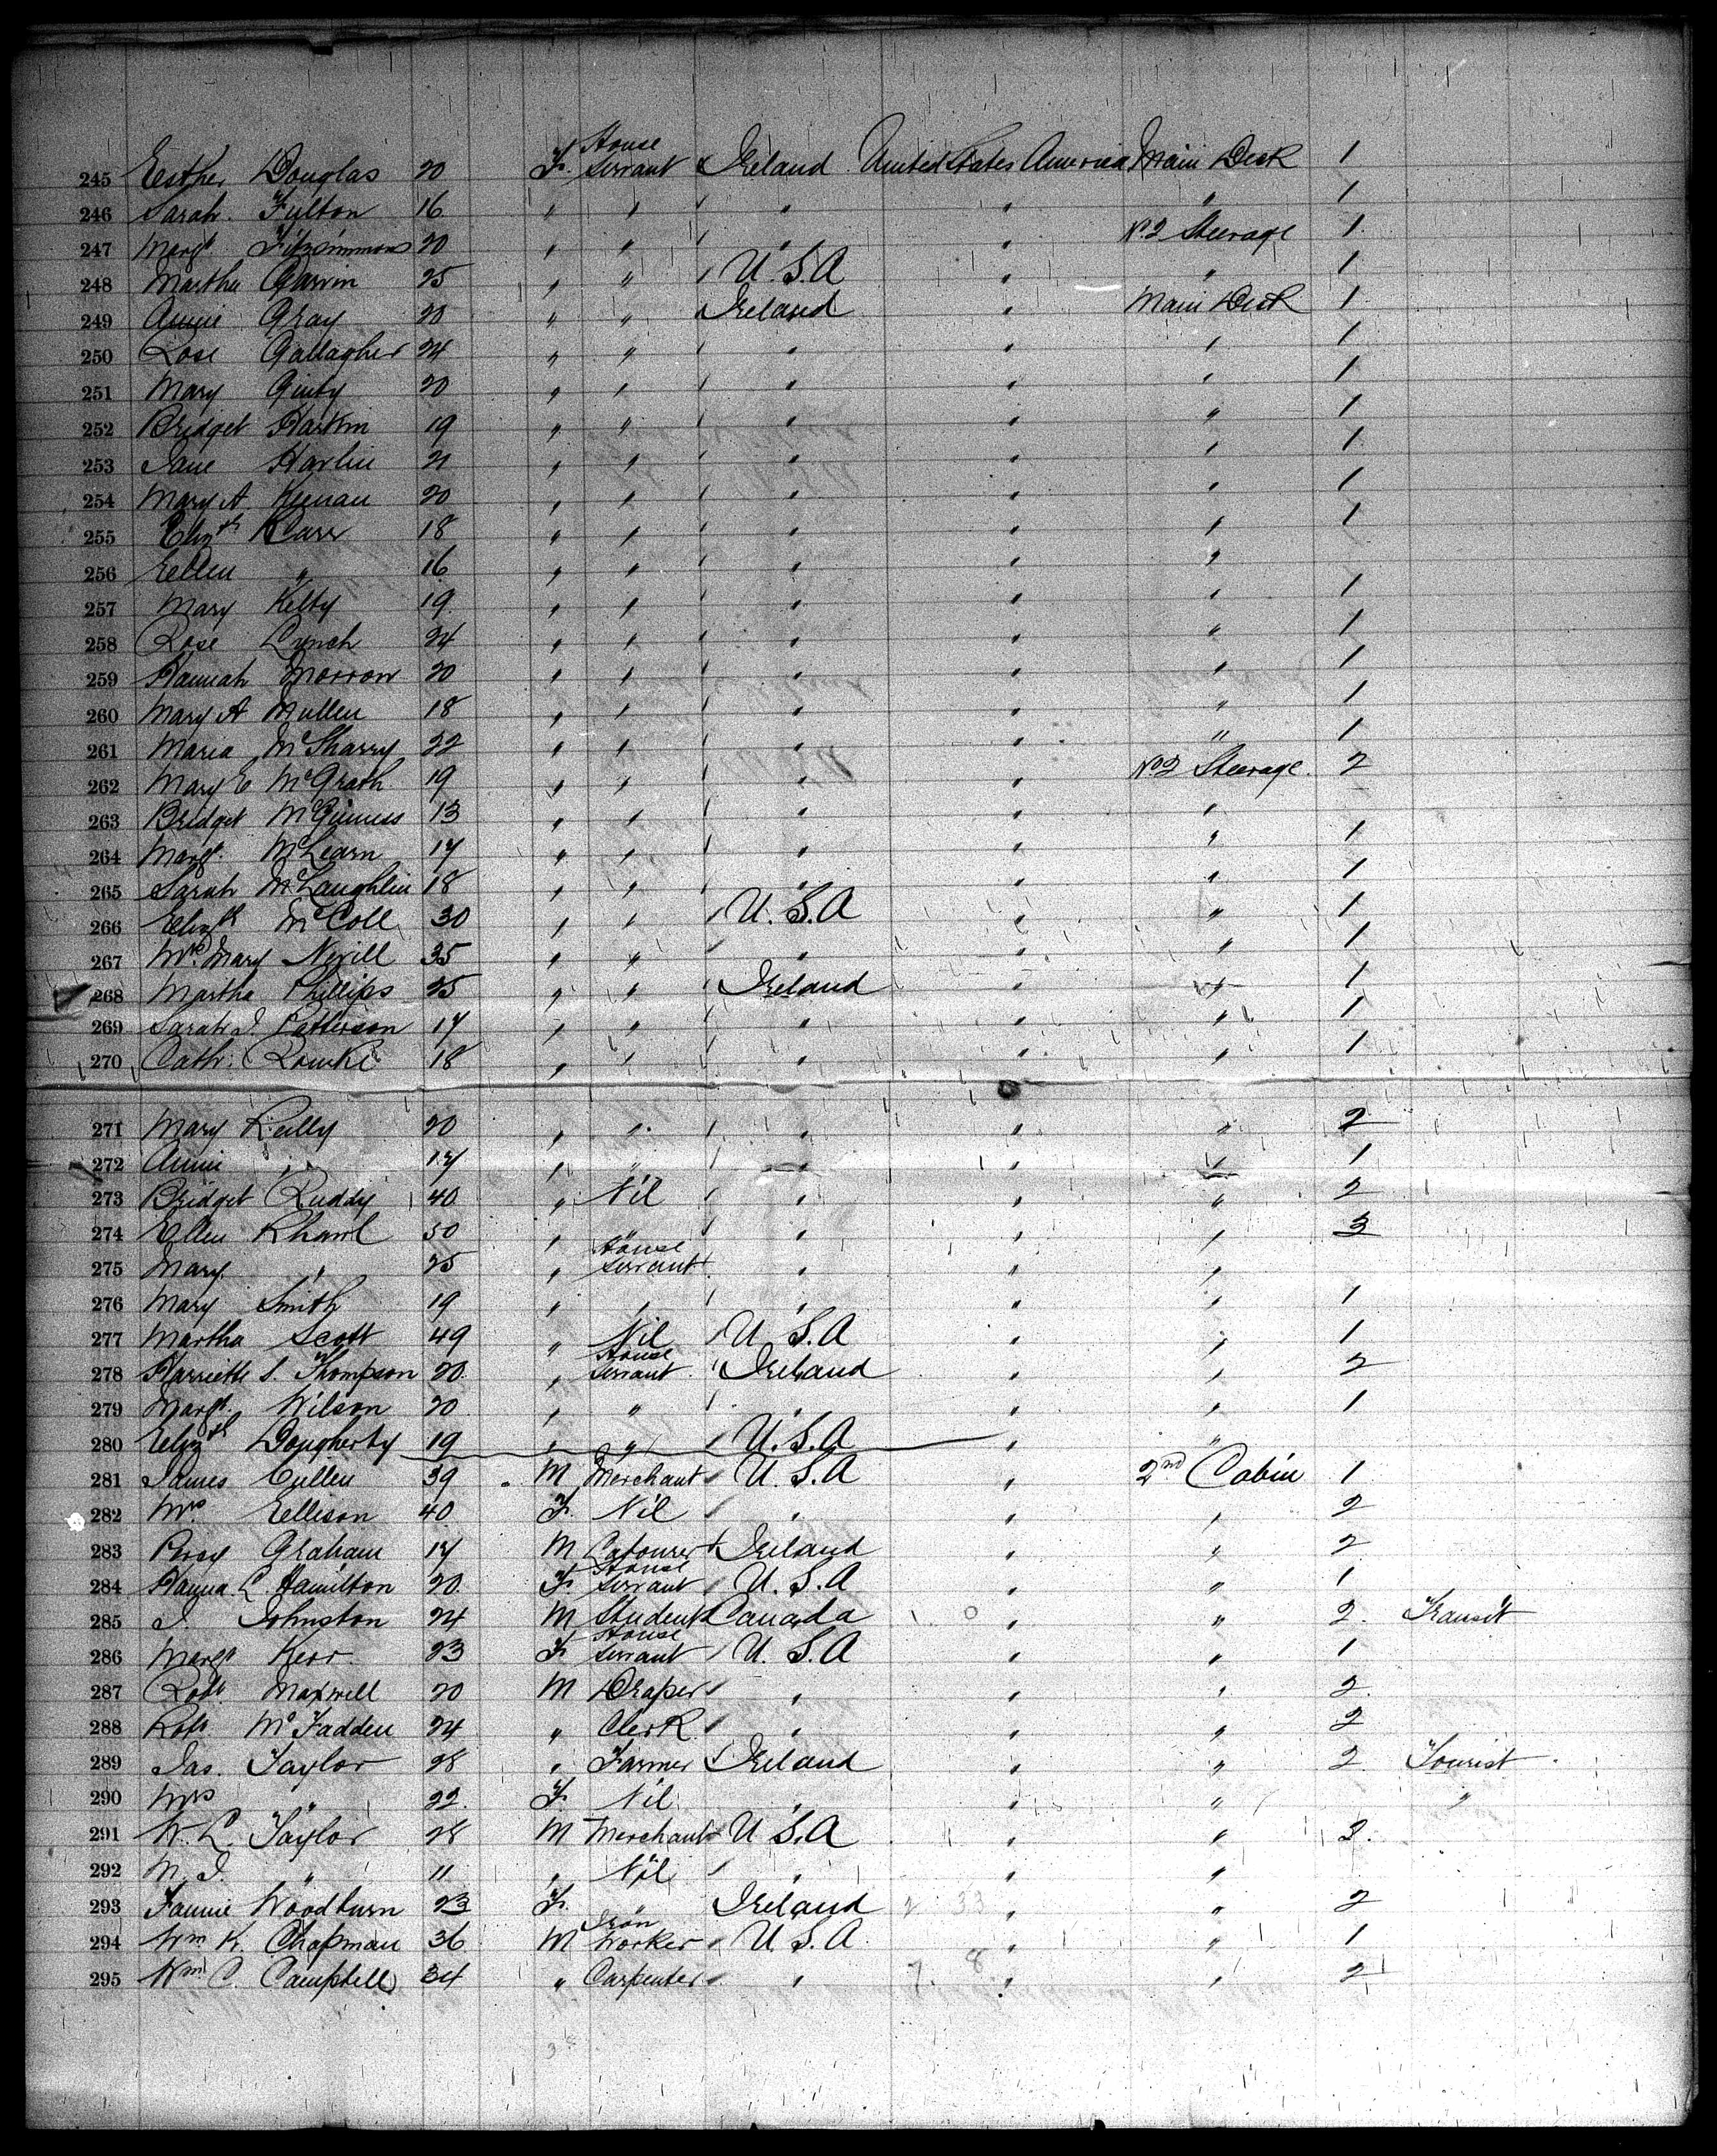 245 Esther Douglas 20 F. House Servant Ireland United States America Main Deck 1
246 Sarah Fulton 16 " " " " " 1
247 Margt. Fitzsimmons 20 " " " " No 2 Steerage 1
248 Martha Garvin 25 " " U.S.A " " 1
249 Annie Gray 20 " " Ireland " Main Deck 1
250 Rose Gallagher 24 " " " " " 1
251 Mary Ginty 20 " " " " " 1
252 Bridget Harkin 19 " " " " " 1
253 Jane Harlin 21 " " " " " 1
254 Mary A Keenan 20 " " " " " 1
255 Elizth Karr 18 " " " " " 1
256 Ellen " 16 " " " " "
257 Mary Kelty 19 " " " " " 1
258 Rose Lynch 24 " " " " " 1
259 Hannah Morrow 20 " " " " " 1
260 Mary A Mullen 18 " " " " " 1
261 Maria McSharry 22 " " " " " 1
262 Mary E McGrath 19 " " " " No 2 Steerage 2
263 Bridget McGinness 13 " " " " "
264 Margt. McLearn 17 " " " " " 1
265 Sarah McLaughlin 18 " " " " " 1
266 Elizth McColl 30 " " U.S.A " " 1
267 Mrs Mary Nevill 35 " " " " " 1
268 Martha Phillips 25 " " Ireland " " 1
269 Sarah J. Patterson 17 " " " " " 1
270 Cath. Rourke 18 " " " " " 1
271 Mary Reilly 20 " " " " " 2
272 Annie " 17 " " " " " 1
273 Bridget Ruddy 40 " Nil " " " 2
274 Ellen 50 " " " " " 3
275 Mary " 25 " House Servant " " "
276 Mary Smith 19 " " " " " 1
277 Martha Scott 49 " Nil U.S.A " " 1
278 Harriette S. Thompson 20 " House Servant Ireland " " 2
279 Margt. Wilson 20 " " " " " 1
280 Elizth Dougherty 19 " " U.S.A " "
281 James Cullen 39 M Merchant U.S.A " 2nd Cabin 1
282 Mrs Ellison 40 F. Nil " " " 2
283 Percy Graham 17 M Labourer Ireland " " 2
284 Hanna C. Hamilton 20 F. House Servant U.S.A " " 1
285 J. Johnston 24 M Student Canada " " 2. Transit
286 Margt Kerr 23 F. House Servant U.S.A " " 1
287 Robt. Maxwell 20 M Draper " " " 2.
288 Robt. McFadden 24 " Clerk " " " 2
289 Jas. Taylor 28 " Farmer Ireland " " 2 Tourist
290 Mrs " 22 F. Nil " " " "
291 W. L. Taylor 28 M Merchant U.S.A " " 3.
292 J. " 11 " Nil " " "
293 Fannie Woodburn 23 F. " Ireland " " 2
294 Wm K. Chapman 36 M Iron Worker U.S.A " " 1
295 Wm C. Campbell 34 " Carpenter " " " 2